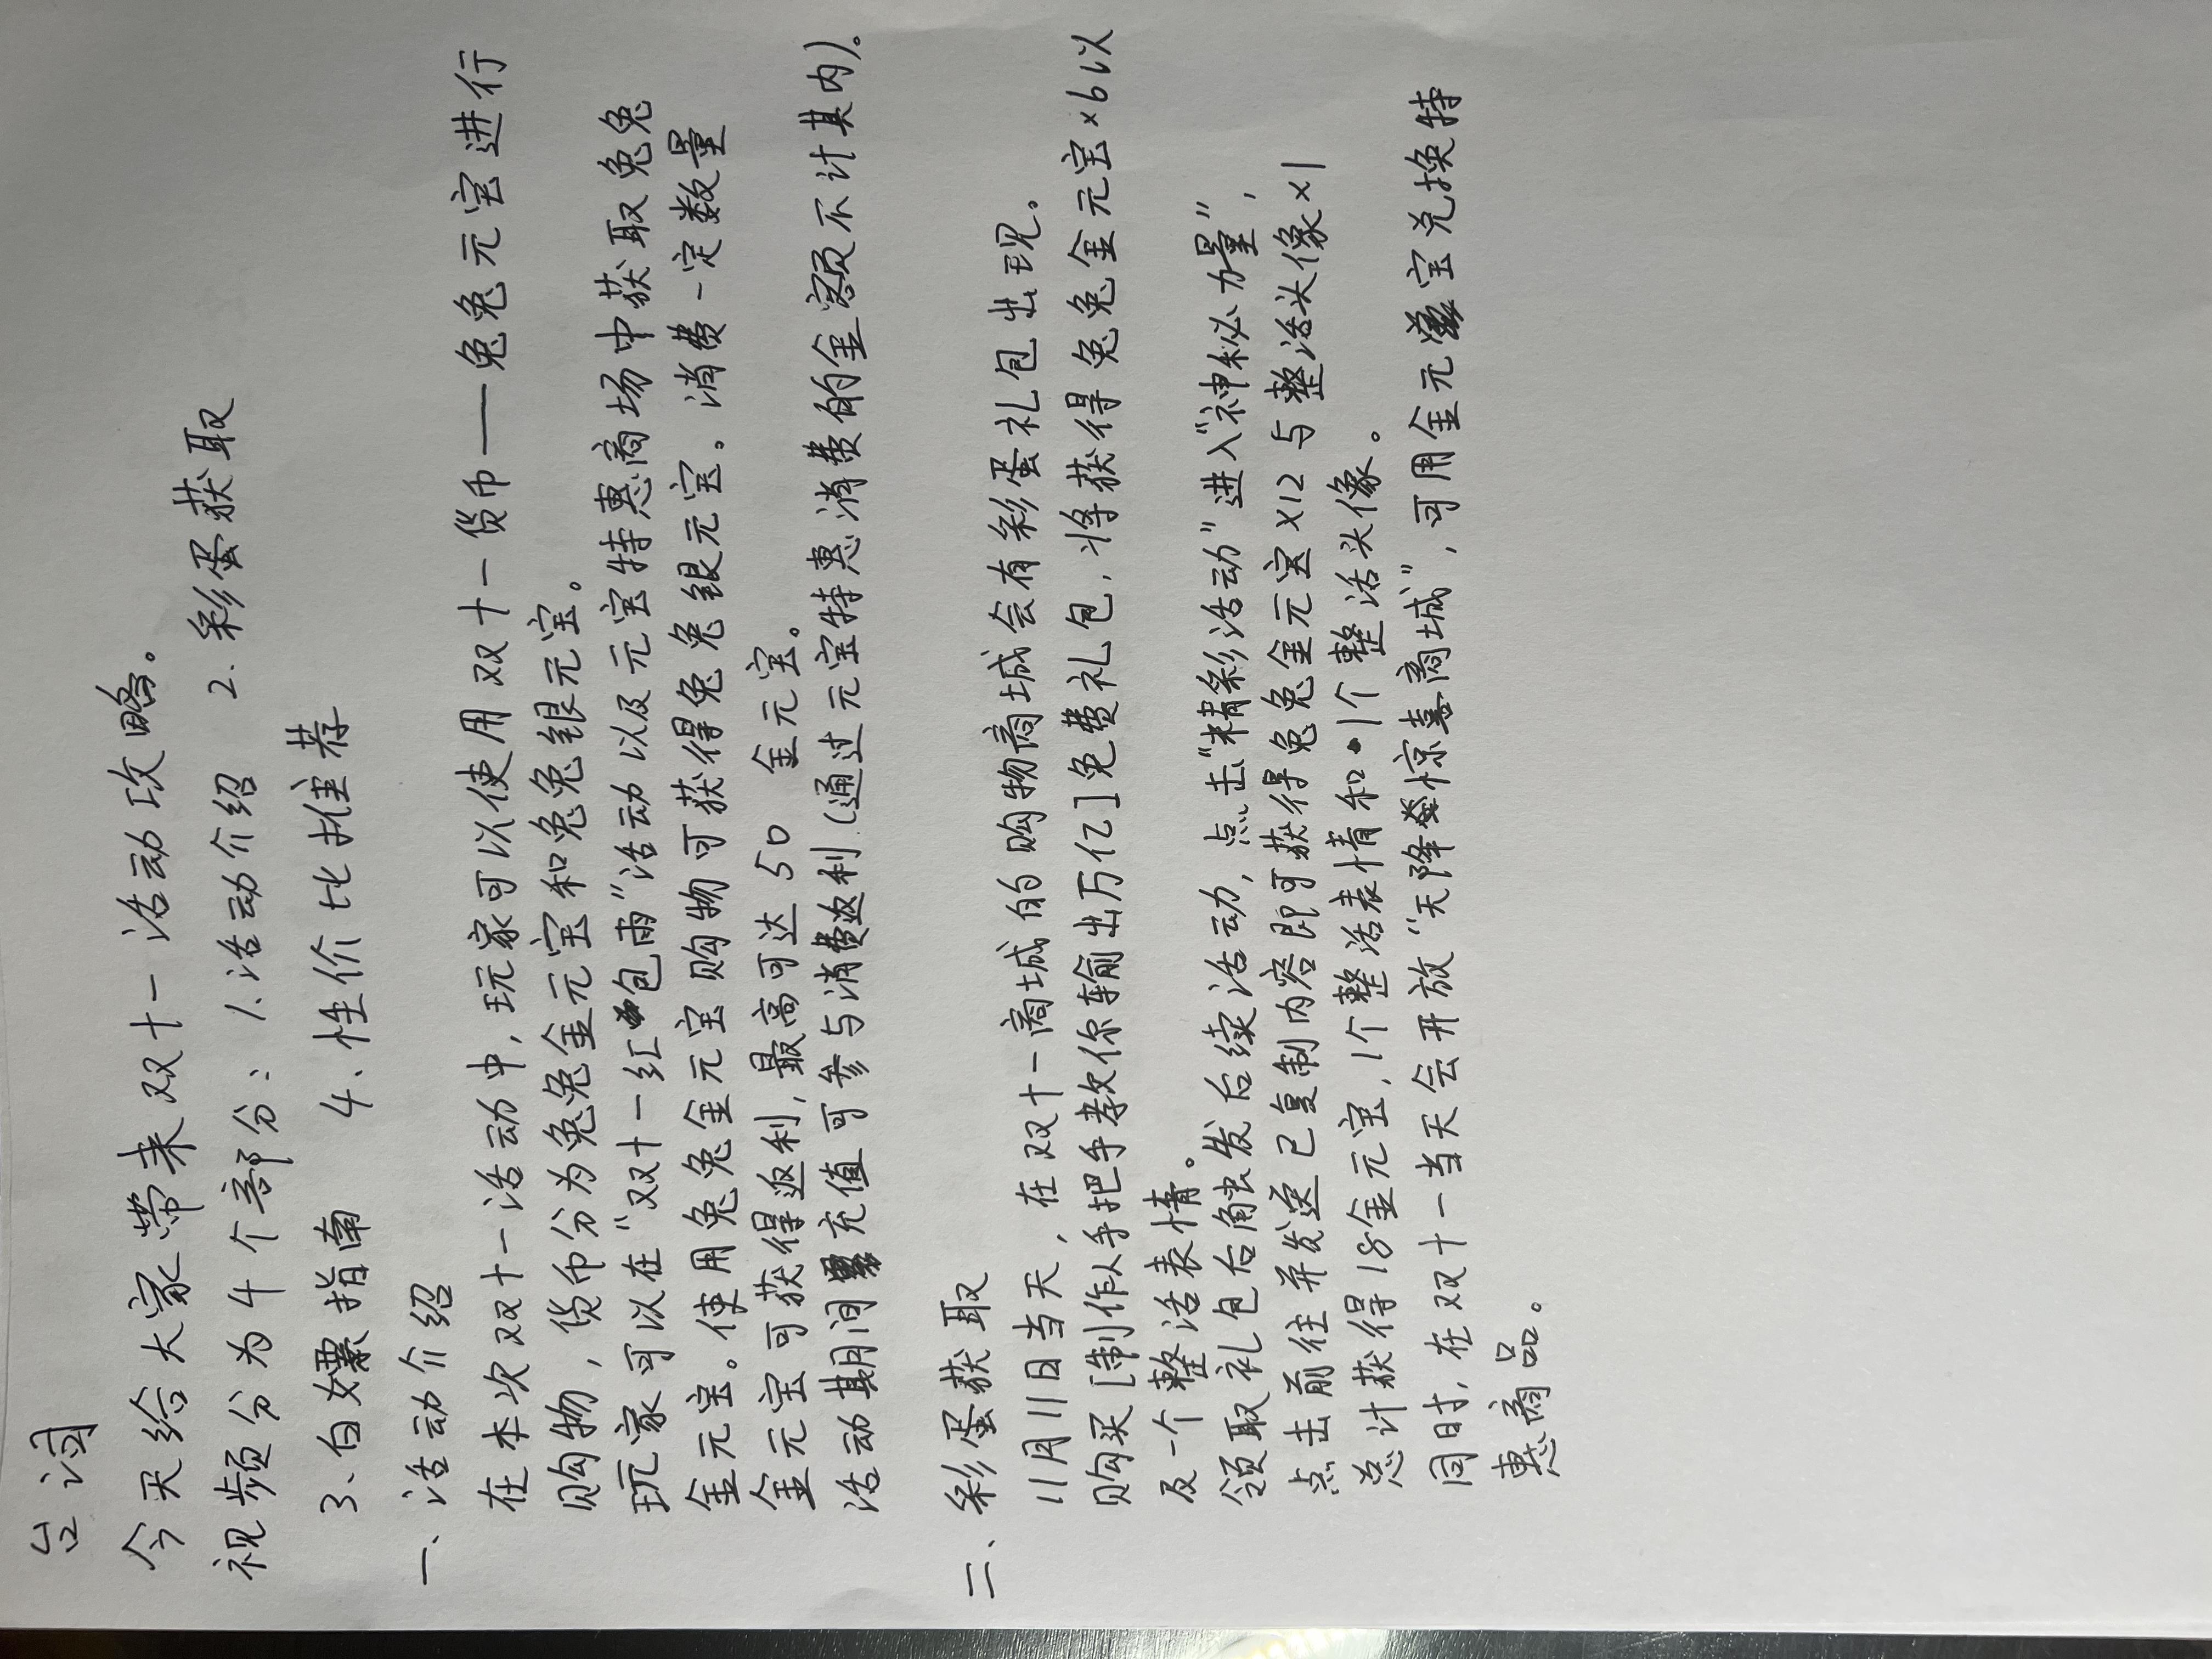 台词
今天给大家带来双十一活动攻略。
视频分为4个部分：1.活动介绍 2.彩蛋获取
3、白嫖指南 4、性价比推荐
一、活动介绍
在本次双十一活动中，玩家可以使用双十一货币——兔兔元宝进行
购物，货币分为兔兔金元宝和兔兔银元宝。
玩家可以在“双十一红包雨”活动以及元宝特惠商场中获取兔兔
金元宝。使用兔兔金元宝购物可获得兔兔银元宝。消费一定数量
金元宝可获得返利，最高可达50 金元宝。
活动期间充值可参与消费返利（通过元宝特惠消费的金额不计其内）。
二、彩蛋获取
11月11日当天，在双十一商城的购物商城会有彩蛋礼包出现。
购买[制作人手把手教你输出万亿]免费礼包，将获得兔兔金元宝×6以
及一个整活表情。
领取礼包后触发后续活动，点击“精彩活动”进入“神秘力量”，
点击前往并发送已复制内容即可获得兔兔金元宝×12与整活头像×1
总计获得18金元宝，1个整活表情和1个整活头像。
同时，在双十一当天会开放“天降惊喜商城”，可用金元宝兑换特
惠商品。